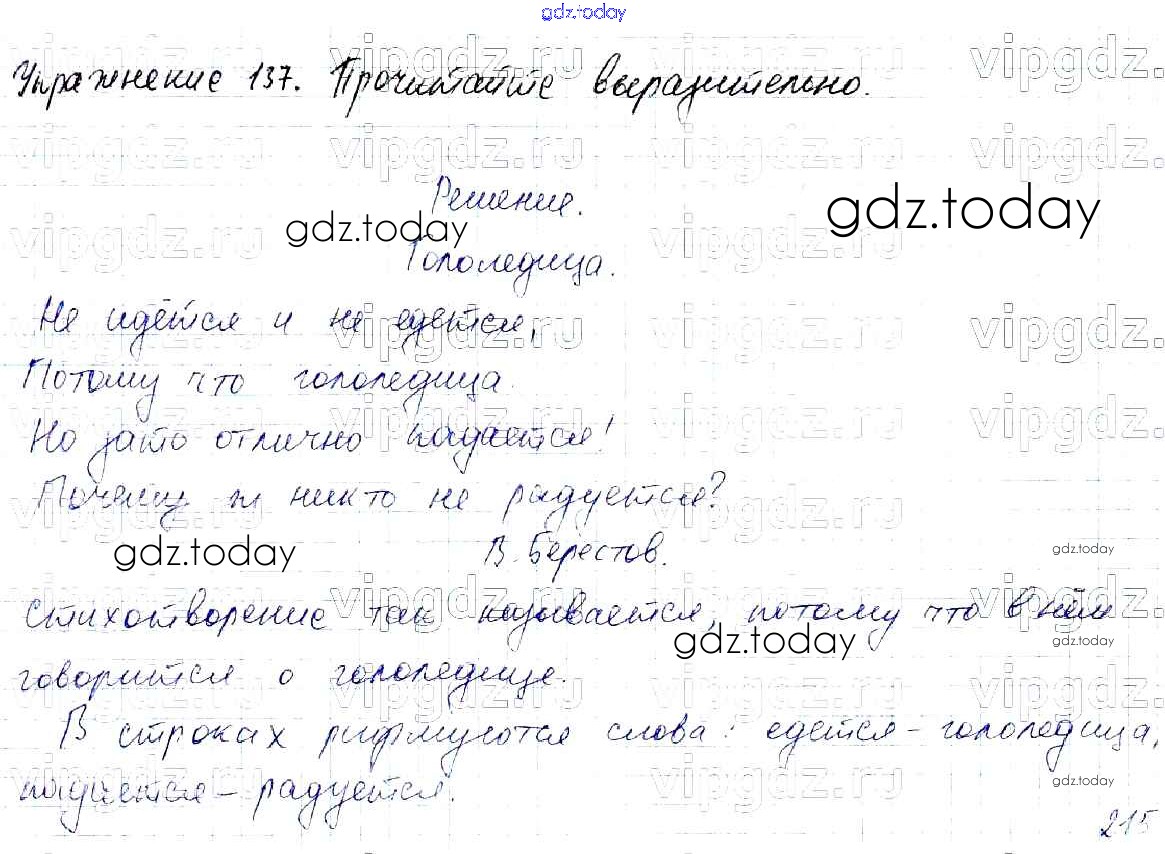 gdz.today
Упражнение 137. Прочитайте выразительно.
Решение.
gdz.today
gdz.today
Гололедица.
Не идётся и не едется,
Потому что гололедица.
Но зато отлично падается!
Почему ж никто не радуется?
gdz.today
В. Берестов.
gdz.today
Стихотворение так называется, потому что в нём
gdz.today
gdz.today
говорится о гололедице.
В строках рифмуются слова: едется - гололедица,
падается - радуется.
gdz.today
215